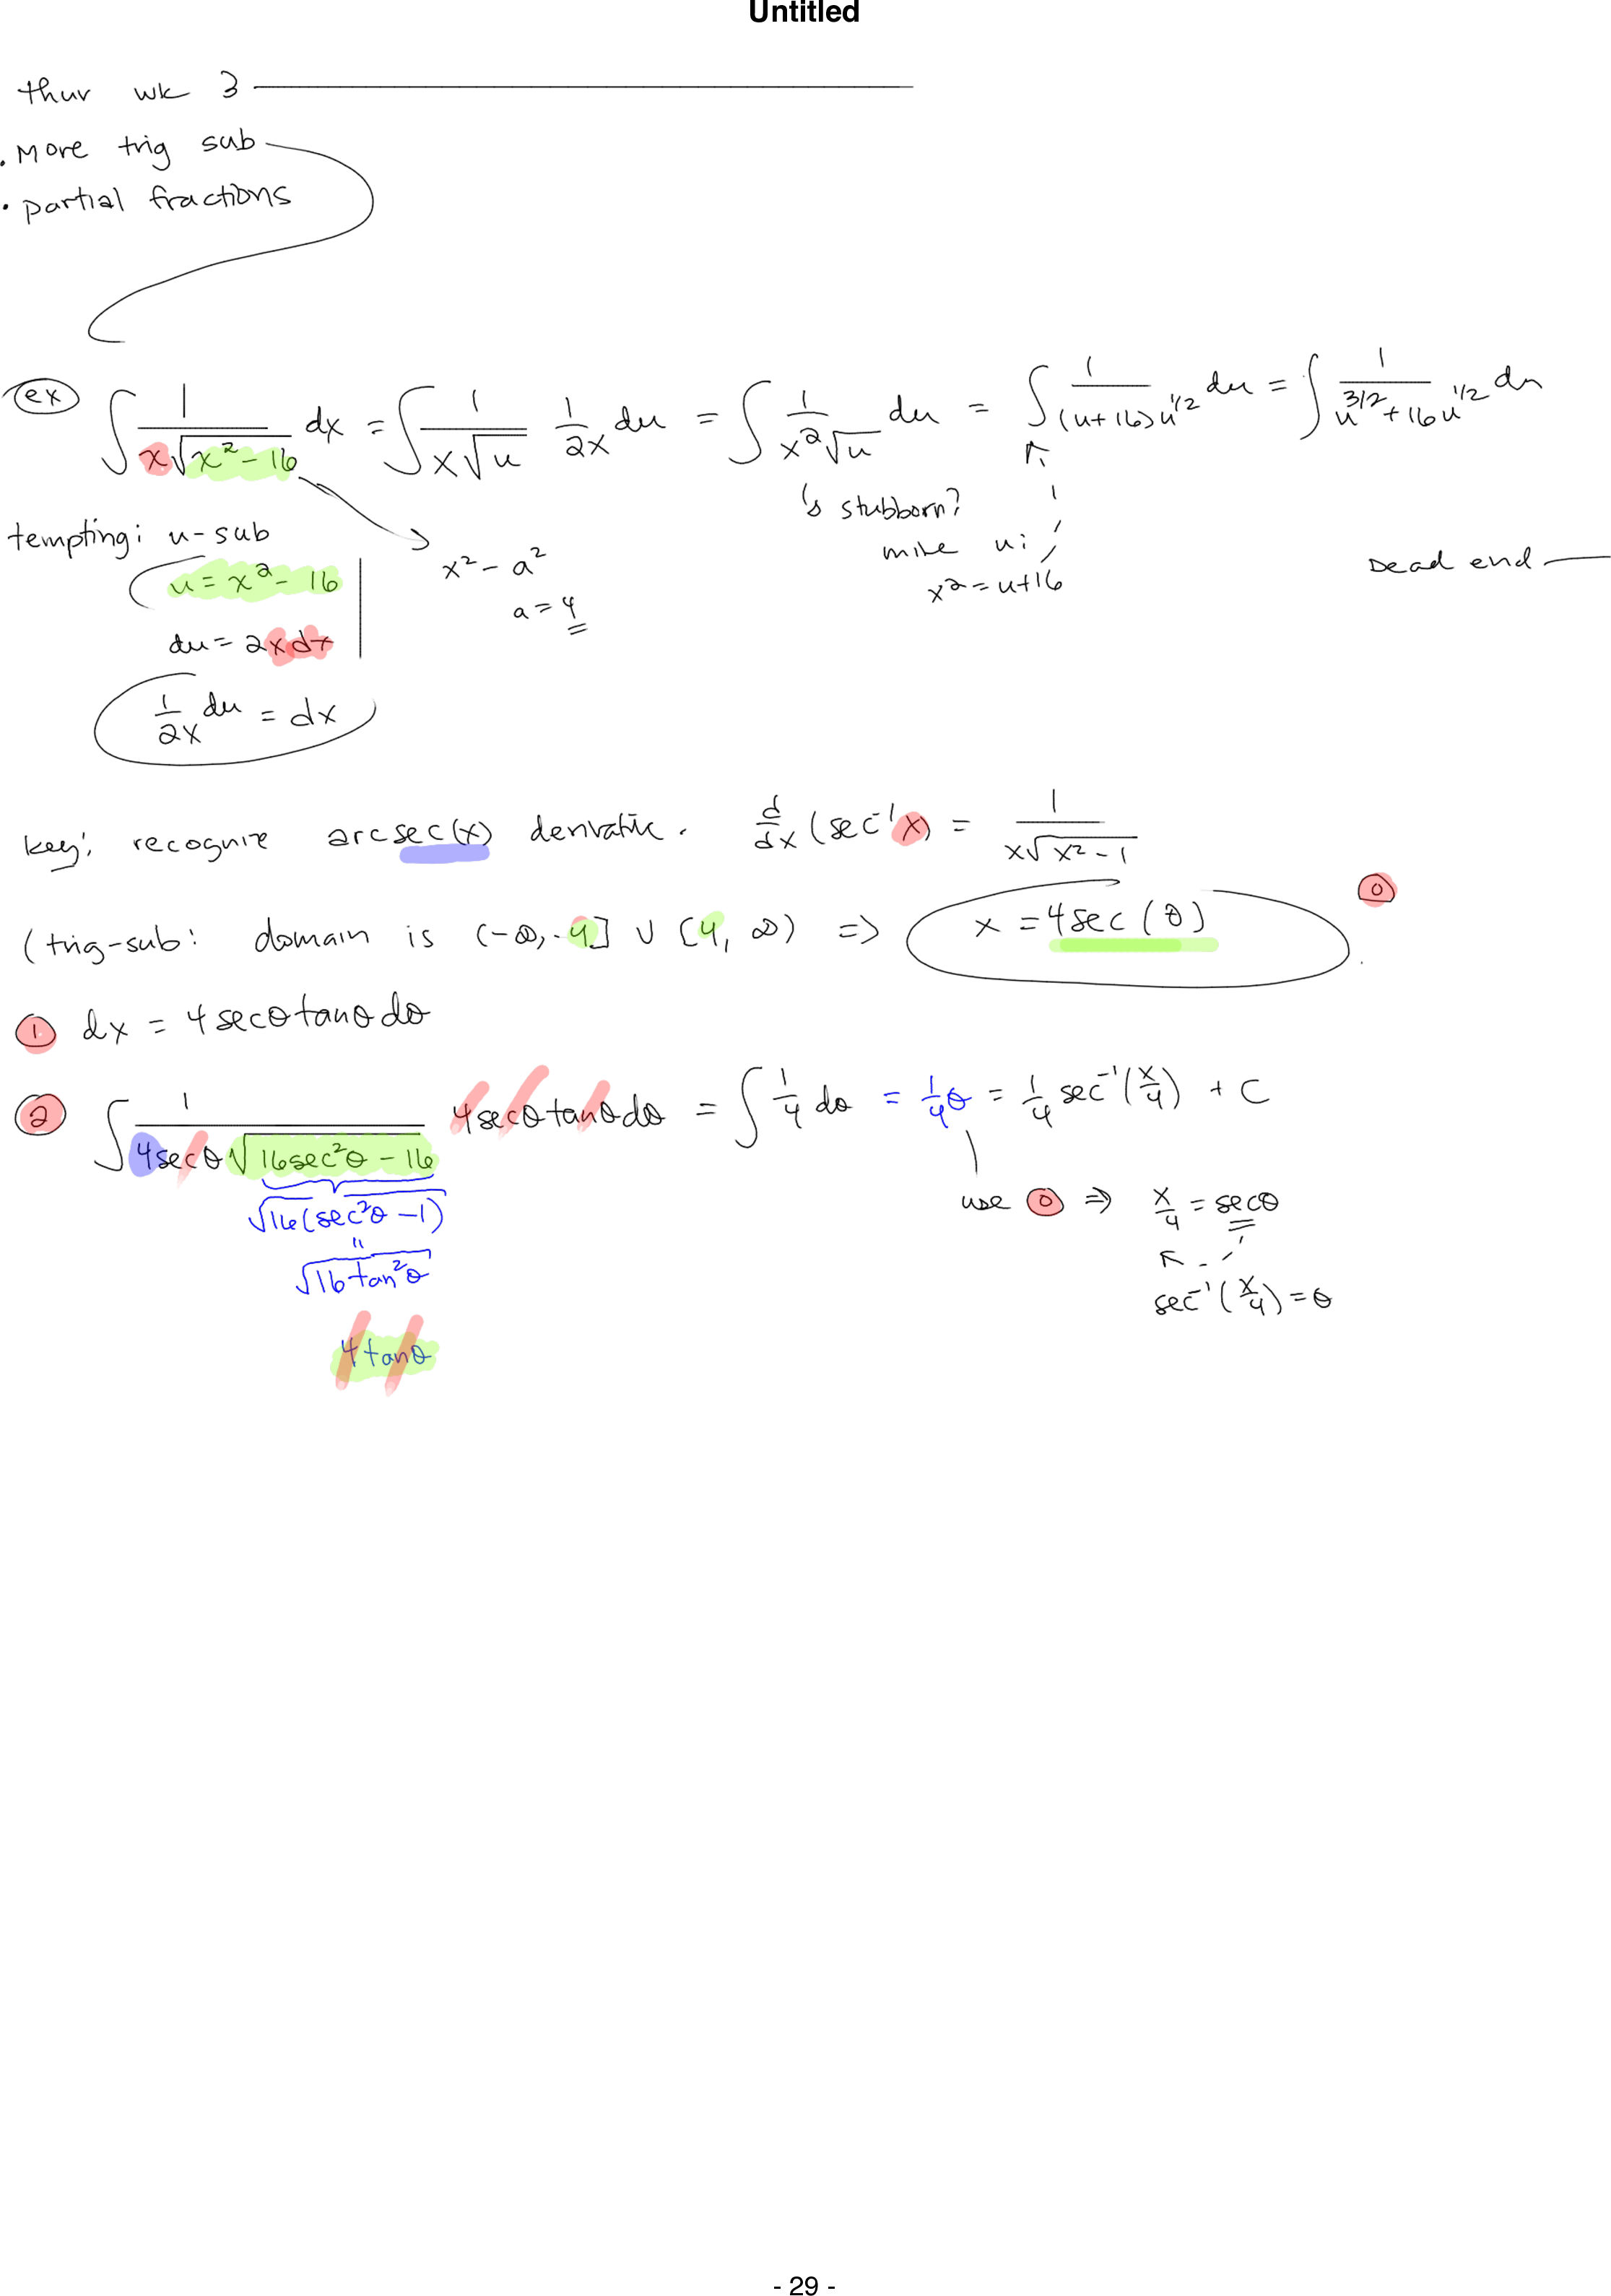 Untitled
thur wk 3
• More trig sub
• partial fractions
ex ∫ 1/(x√(x² - 16)) dx = ∫ 1/(x√u) 1/(2x) du = ∫ 1/(x²√u) du = ∫ 1/((u+16)u^(1/2)) du = ∫ 1/(u^(3/2) + 16u^(1/2)) du
tempting: u-sub
u = x² - 16
du = 2x dx
1/(2x) du = dx
x² - a²
a = 4
's stubborn?
mine u:
x² = u+16
Dead end
key: recognize arcsec(x) derivative. d/dx (sec⁻¹ x) = 1/(x√(x² - 1))
(trig-sub: domain is (-∞, -4] ∪ [4, ∞) => x = 4sec(θ) 0
1 dx = 4 secθ tanθ dθ
2 ∫ 1/(4secθ√(16sec²θ - 16)) 4 secθ tanθ dθ = ∫ 1/4 dθ = 1/4 θ = 1/4 sec⁻¹(x/4) + C
√(16(sec²θ - 1))
"
√(16tan²θ)
4tanθ
use 0 ⇒ x/4 = secθ
sec⁻¹(x/4) = θ
- 29 -